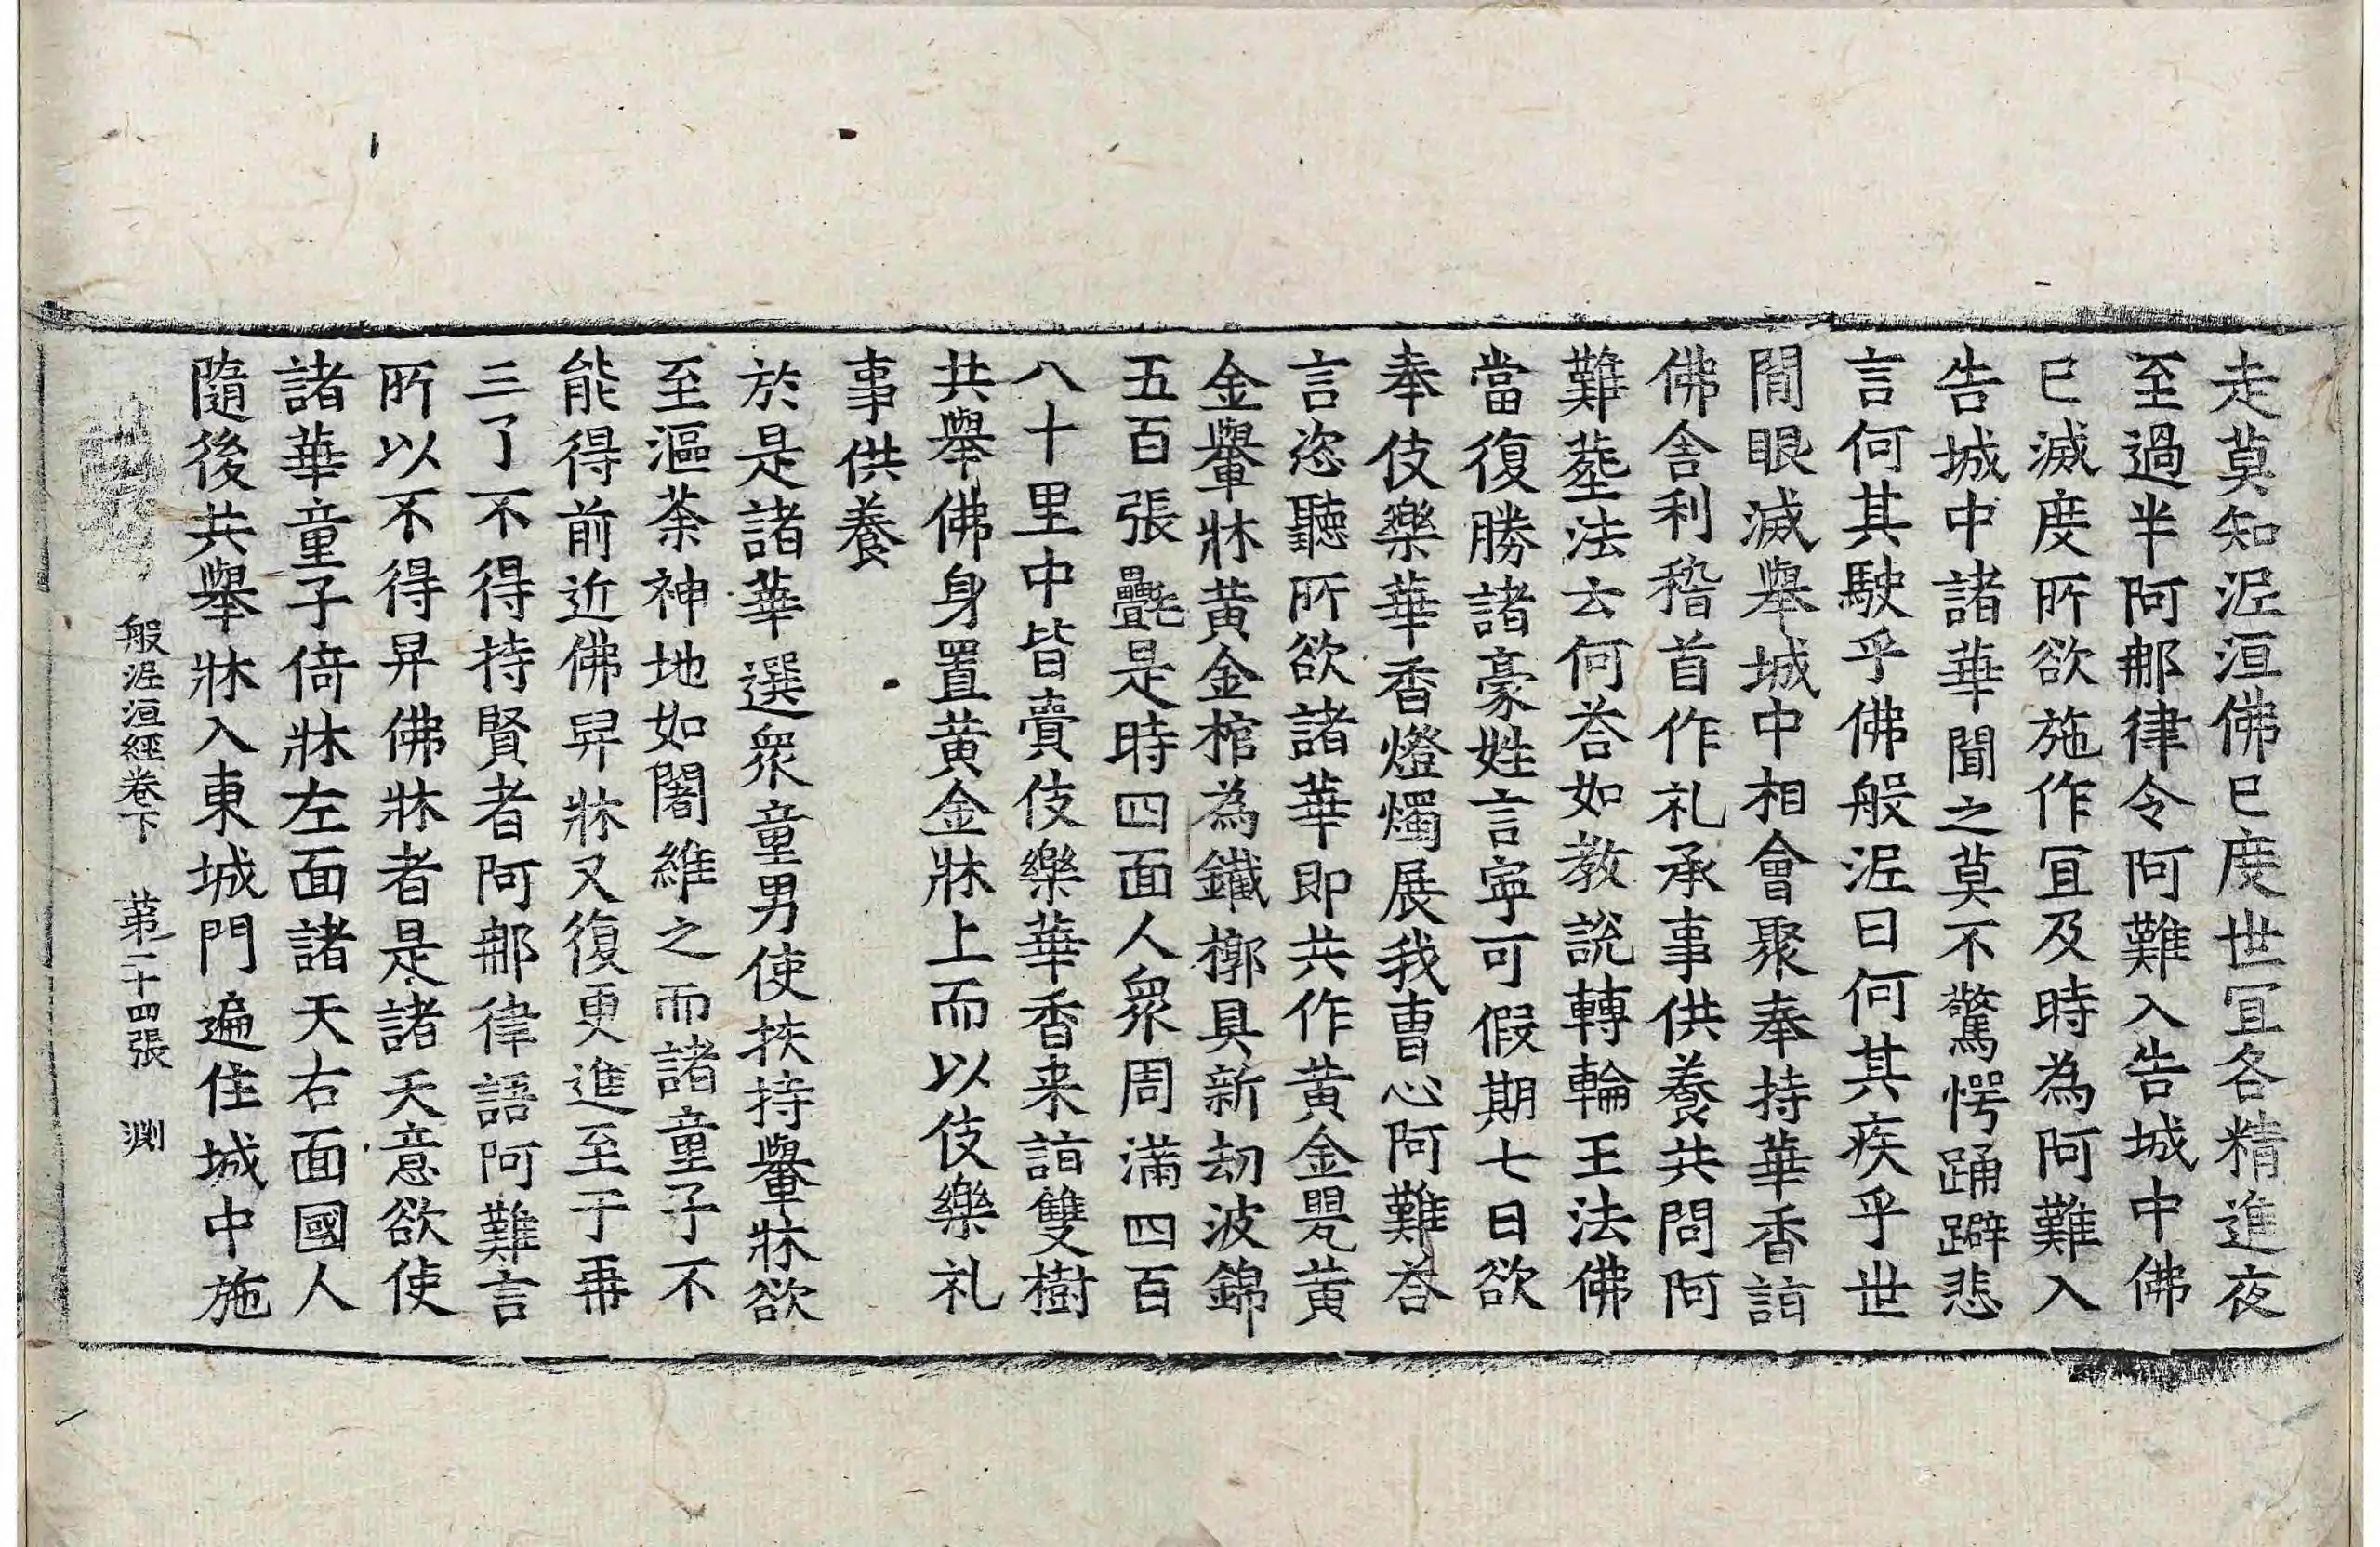 走莫知泥洹佛已度世宜各精進夜
至過半阿那律令阿難入告城中佛
已滅度所欲施作宜及時為阿難入
告城中諸華聞之莫不驚愕踊躃悲
言何其駛乎佛般泥曰何其疾乎世
間眼滅舉城中相會聚奉持華香詣
佛舍利稽首作礼承事供養共問阿
難塟法云何荅如教說轉輪王法佛
當復勝諸豪姓言寧可假期七日欲
奉伎樂華香燈燭展我曹心阿難荅
言恣聽所欲諸華即共作黃金甖黃
金轝牀黃金棺為鐵槨具新劫波錦
五百張㲲是時四面人眾周滿四百
八十里中皆賷伎樂華香来詣雙樹
共舉佛身置黃金牀上而以伎樂礼
事供養
於是諸華選眾童男使挾持轝牀欲
至漚荼神地如闍維之而諸童子不
能得前近佛舁牀又復更進至于再
三了不得持賢者阿那律語阿難言
所以不得舁佛牀者是諸天意欲使
諸華童子倚牀左面諸天右面國人
隨後共舉牀入東城門遍住城中施
般泥洹經卷下 第二十四張 渊